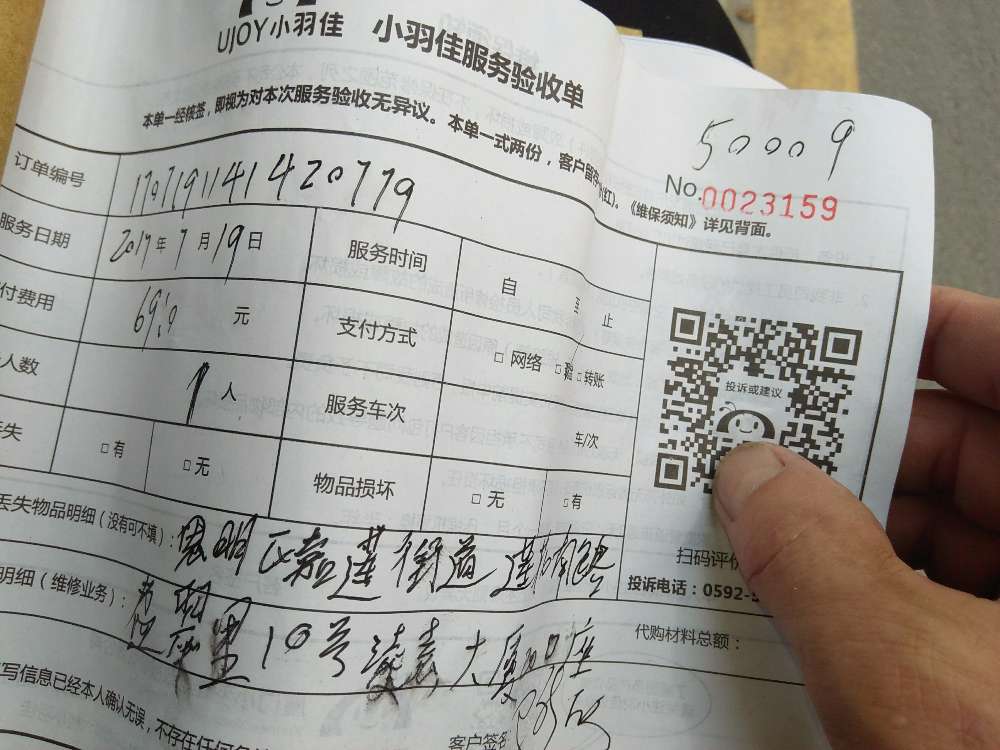 UJOY小羽佳 小羽佳服务验收单
本单一经核签，即视为对本次服务验收无异议。本单一式两份，客户留存 (红)。《维保须知》详见背面。
50009
No. 0023159
订单编号 170719114142077 9
服务日期 2017年7月19日 服务时间 自 至 止
付费用 69.9 元 支付方式 □ 网络 □ □ 转账
人数 1人 服务车次 车/次
丢失 □ 有 □ 无 物品损坏 □ 无 □ 有
丢失物品明细（没有可不填）：
嘉莲街道莲
明细（维修业务）：
10号凌 大厦 座
投诉或建议
扫码评价
投诉电话：0592-
代购材料总额：
写信息已经本人确认无误，不存在任何
客户签名